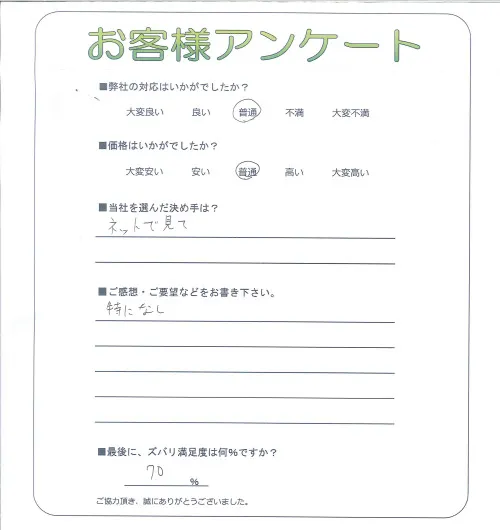 お客様アンケート
■弊社の対応はいかがでしたか？
大変良い 良い 普通 不満 大変不満
■価格はいかがでしたか？
大変安い 安い 普通 高い 大変高い
■当社を選んだ決め手は？
ネットで見て
■ご感想・ご要望などをお書き下さい。
特になし
■最後に、ズバリ満足度は何%ですか？
70 %
ご協力頂き、誠にありがとうございました。